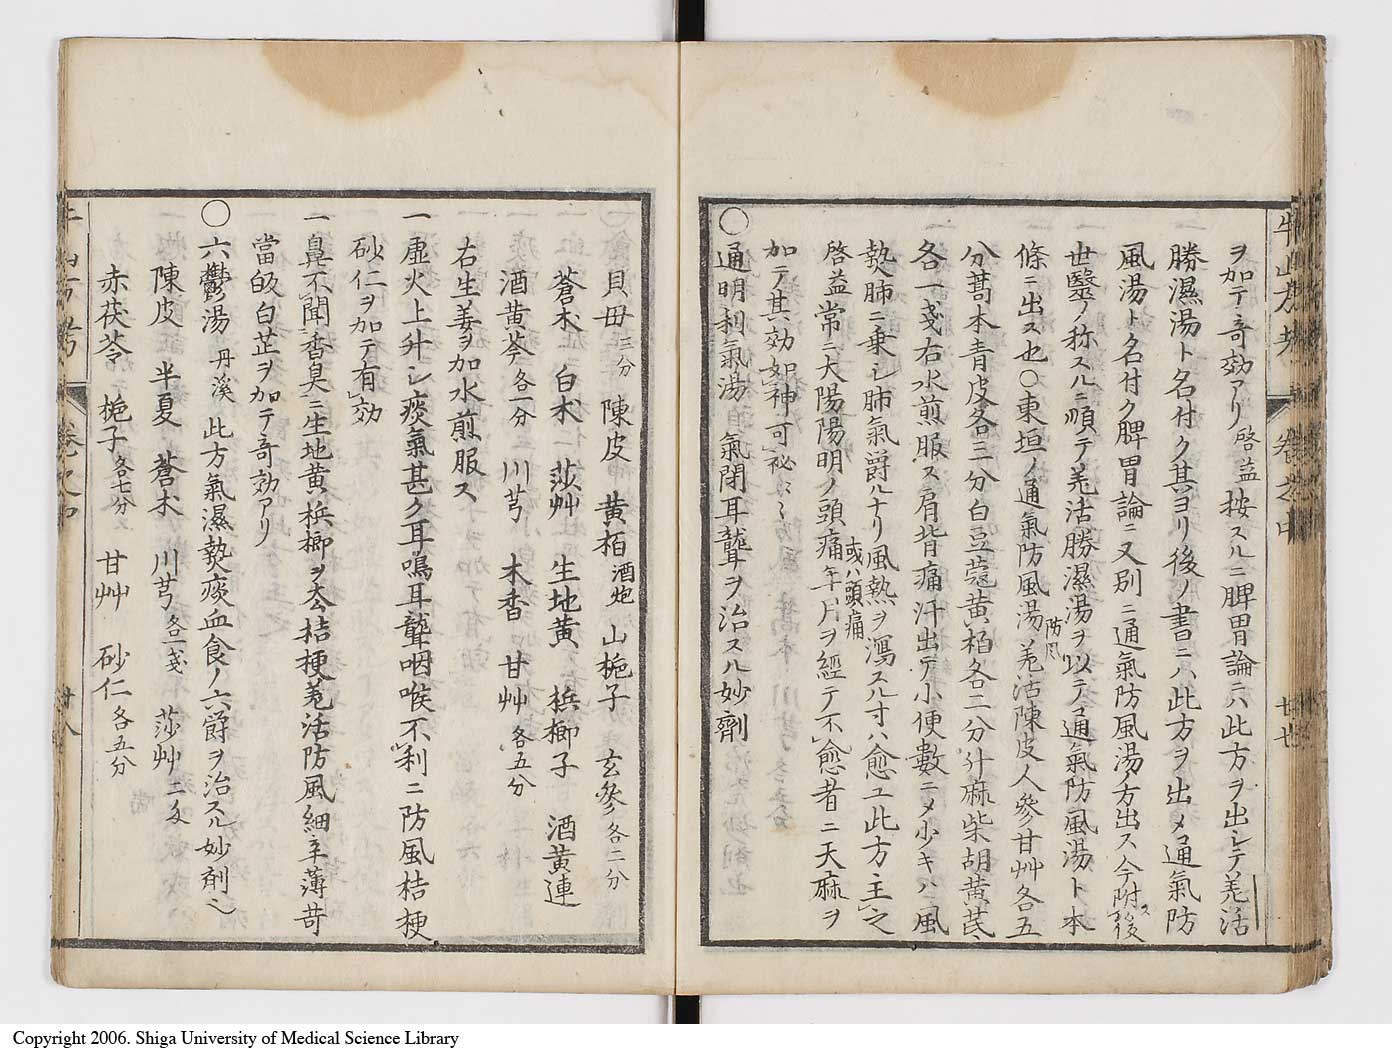 牛山方考 卷之中 廿七
ヲ加テ奇効アリ啓益按スルニ脾胃論ニハ此方ヲ出シテ羌活
勝濕湯ト名付ク其ヨリ後ノ書ニハ此方ヲ出メ通氣防
風湯ト名付ク脾胃論ニ又別ニ通氣防風湯ノ方出ス今附ス後
世醫ノ称スルニ順テ羌活勝濕湯ヲ以テ通氣防風湯ト本
條ニ出ス也○東垣ノ通氣防風湯羌活防風陳皮人參甘艸各五
分藁本青皮各三分白豆蔻黄栢各二分升麻柴胡黄芪
各一戔右水煎服ス肩背痛汗出テ小便數ニメ少キハ風
熱肺ニ乗シ肺氣欝ルナリ風熱ヲ瀉スル寸ハ愈ユ此方主之
啓益常ニ大陽陽明ノ頭痛或ハ頭痛年月ヲ經テ不愈者ニ天麻ヲ
加テ其効如神可祕〻〻
○通明利氣湯 氣閉耳聾ヲ治スル妙劑
貝母三分 陳皮 黄栢酒炮 山梔子 玄參各二分
蒼朮 白朮 莎艸 生地黄 梹榔子 酒黄連
酒黄芩各一分 川芎 木香 甘艸各五分
右生姜ヲ加水煎服ス
一虚火上升シ痰氣甚ク耳鳴耳聾咽喉不利ニ防風桔梗
砂仁ヲ加テ有効
一鼻不聞香臭ニ生地黄梹榔ヲ去桔梗羌活防風細辛薄荷
當皈白芷ヲ加テ奇効アリ
○六鬱湯丹溪 此方氣濕熱痰血食ノ六欝ヲ治スル妙劑也
陳皮 半夏 蒼朮 川芎各一戔 莎艸二戔
赤茯苓 梔子各七分 甘艸 砂仁各五分
牛山方考 卷之中 廿八
Copyright 2006. Shiga University of Medical Science Library